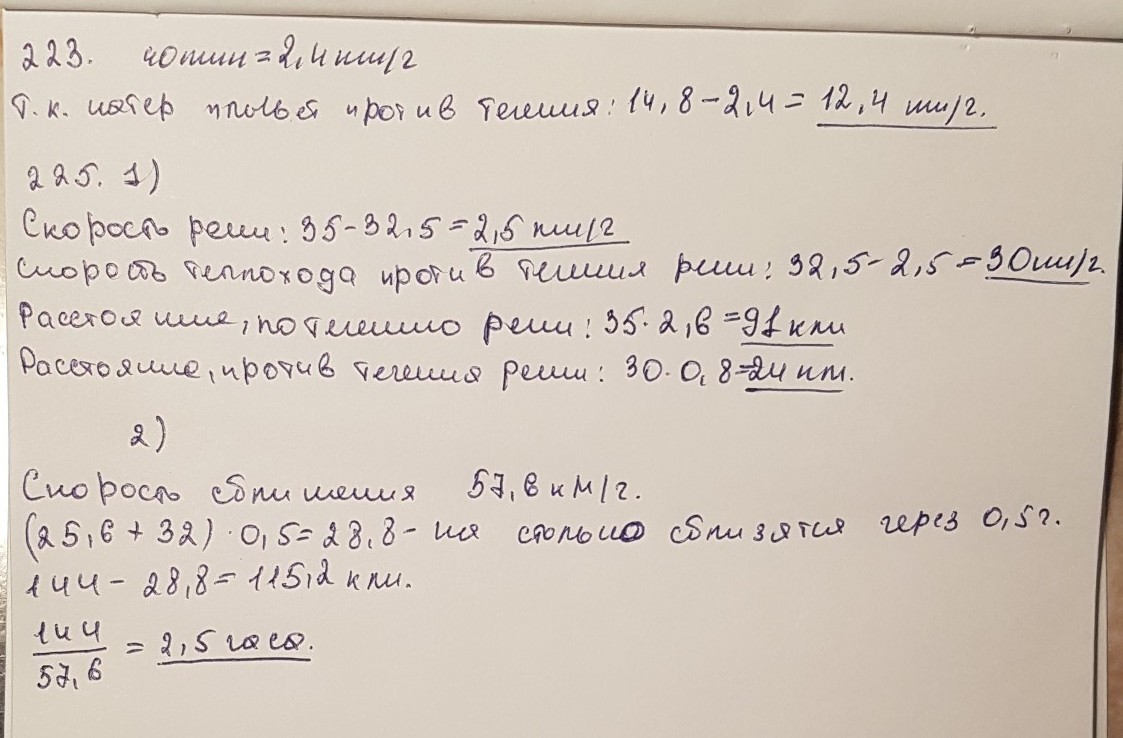 223. 40 мин = 2,4 км/ч
Т.к. катер плывёт против течения: 14,8 - 2,4 = 12,4 км/ч.
225. 1)
Скорость реки: 35 - 32,5 = 2,5 км/ч
Скорость теплохода против течения реки: 32,5 - 2,5 = 30 км/ч.
Расстояние, по течению реки: 35 · 2,6 = 91 км
Расстояние, против течения реки: 30 · 0,8 = 24 км.
2)
Скорость сближения 57,6 км/ч.
(25,6 + 32) · 0,5 = 28,8 - на столько сблизятся через 0,5 ч.
144 - 28,8 = 115,2 км.
144/57,6 = 2,5 часа.